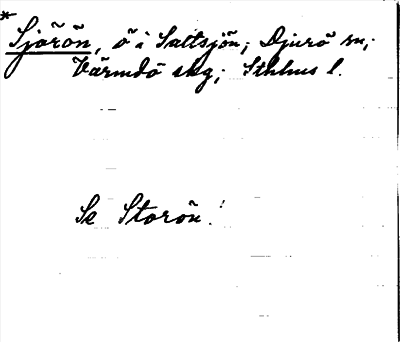 * Sjörön, ö i Saltsjön; Djurö sn;
Värmdö skg; Sthlms l.
Se Storön!